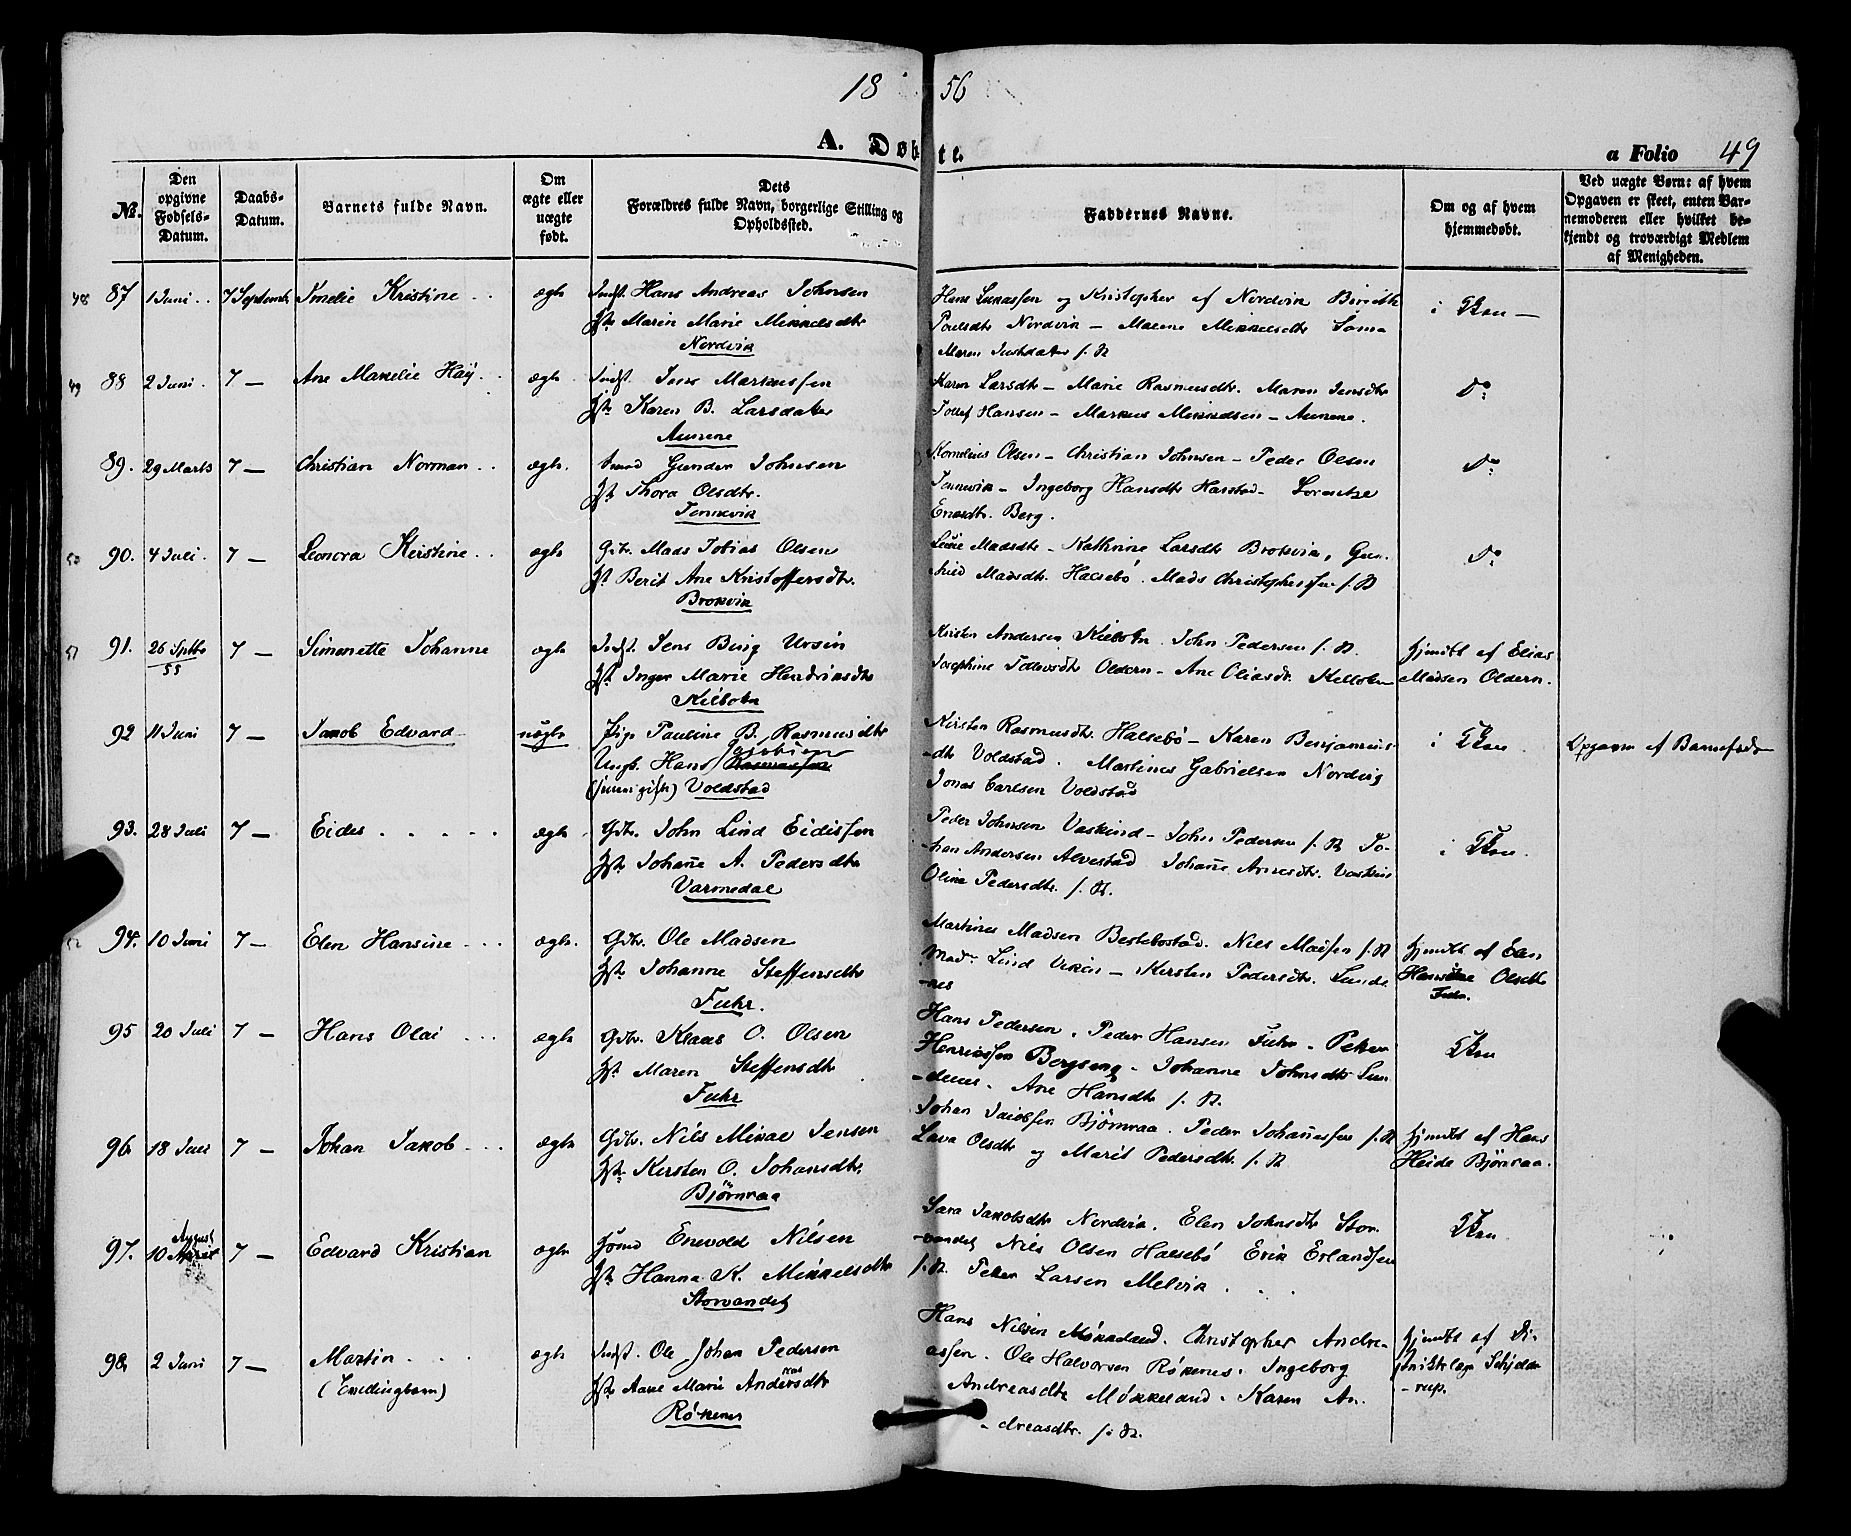 18 56
A. Døbte.
a Folio 49
No. | Den opgivne Fødsels-Datum. | Daabs-Datum. | Barnets fulde Navn. | Om ægte eller uægte født. | Dets Forældres fulde Navn, borgerlige Stilling og Opholdssted. | Faddernes Navne. | Om og af hvem hjemmedøbt. | Ved uægte Børn: af hvem Opgaven er skeet, enten Barnemoderen eller hvilket bekjendt og troværdigt Medlem af Menigheden.
48 87 1 Juni 7 Septembr Amelie Kristine ægte Indst. Hans Andreas Johnsen
Hst. Maren Marie Mikkelsdtr
Nordvik
Hans Lukassen og Kristopher af Nordvik Berith
Poulsdtr Nordvik – Malene Mikkelsdtr Sama
Maren Justdatter s. St.
i Kken –
49 88 2 Juni 7 – Ane Makelie Høy ægte Indst. Jens Markussen
Hst. Karen B. Larsdatter
Aunene
Karen Larsdtr – Marie Rasmusdtr. Maren Jensdtr
Tollef Hansen – Markus Mikkelsen – Aunene.
Do:
89. 29 Marts 7 – Christian Norman ægte. Gunder Johnsen
Hst. Thora Olsdtr.
Tennevik
Kornelius Olsen – Christian Johnsen – Peder Olsen
Tennevik – Ingeborg Hansdtr Harstad – Lorentze
Eriksdtr. Berg.
Do:
50 90. 4 Juli 7 – Leonora Kristine ægte Gdbr. Mads Tobias Olsen
Hst Berit Ane Kristoffersdtr.
Brokvik
Madsdtr – Kathrine Larsdtr Brokvik, Gun-
hild Madsdtr. Halsebø. Mads Christophersen s. St
Do:
51 91. 26 Septbr 55 7 – Simonette Johanne ægte Indst. Jens Bing Ursin
Hst Inger Marie Hendriksdtr
Kilbotn
Kristen Andersen Kilbotn. John Pedersen s. St.
Josephine Tollevsdtr Oldern – Ane Oliasdtr. Kilbotn
Hjmdbt af Elias
Madsen Oldern.
92 11 Juni 7 – Jakob Edvard uægte Pige Pauline B. Rasmusdtr
Ungk. Hans Jacobsen Rasmussen
Voldstad
Kirsten Rasmusdtr. Halsebø – Karen Benjamins-
dtr Voldstad. Martines Gabrielsen Nordvig
Jonas Carlsen Voldstad
i Kken.
Opgaven af Barnefader
93. 28 Juli 7 – Eides ægte Gdbr. John Lind Eidissen
Hst. Johane A. Pedersdtr
Varmedal
Peder Johnsen Vaskind – John Pedersen s. St. Jo-
han Andersen Alvestad Johane Arnesdtr. Vaskind
Olina Pedersdtr. s. St.
i Kken.
52 94. 10 Juni 7 – Elen Hansine ægte. Gdbr. Ole Madsen
Hst. Johanne Steffensdtr
Fuhr.
Martines Madsen Bestebostad. Nils Madsen s. St
Mad. Lind Viken – Kirsten Pedersdtr. Lunde
-nes
Hjmdbt af Elen
Hansine Olsdtr
Fuhr.
95 20 Juli 7 – Hans Olai ægte Gdbr. Klaus O. Olsen
Hst Maren Steffensdtr
Fuhr
Hans Pedersen. Peder Hansen Fuhr – Peter
Henriksen Bergseng – Johanne Johnsdtr Lun-
denes. Ane Hansdtr s. St.
Kken
96 18 Juli 7 – Johan Jakob ægte Gdbr. Nils Mikal Jensen
Hst. Kirsten O. Johansdtr.
Bjørnraa
Johan Jacobsen Bjørnraa. Peder Johannessen s. St
Lava Olsdtr og Marit Pedersdtr. s. St
Hjmdbt af Hans
Heide Bjørnraa.
97. 10 August 7 – Edvard Kristian ægte Enevold Nilsen
Hst Hanna K. Mikkelsdtr
Storvandet
Sara Jakobsdtr Nordvik. Elen Johnsdtr Stor-
vandet Nils Olsen Halsebø Erik Erlandsen
s. St. Peter Larsen Melvik.
Kken
98 2 Juni 7 – Martin
(Tvillingbarn)
ægte Indst. Ole Johan Pedersen
Hst Aane Marie Andreasdtr
Røkenes
Hans Nilsen Møkkeland. Christopher Andre-
assen. Ole Halvorsen Røkenes. Ingeborg
Andreasdtr Møkkeland. Karen An-
dreasdtr. s. St.
Hjmdbt af Di-
striktslæge Schjelde-
rup.